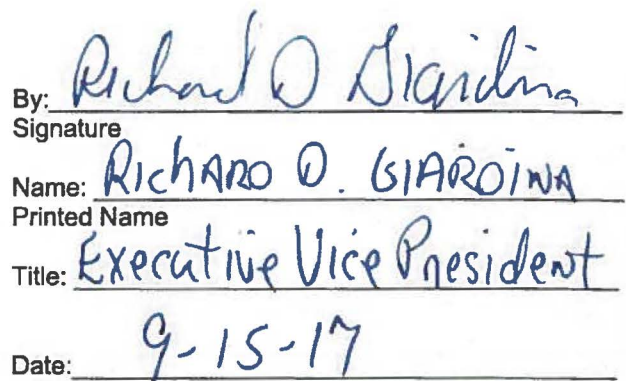 By: Richard D Giardina
Signature
Name: RIChARD D. GIARDiNA
Printed Name
Title: Executive Vice President
Date: 9-15-17